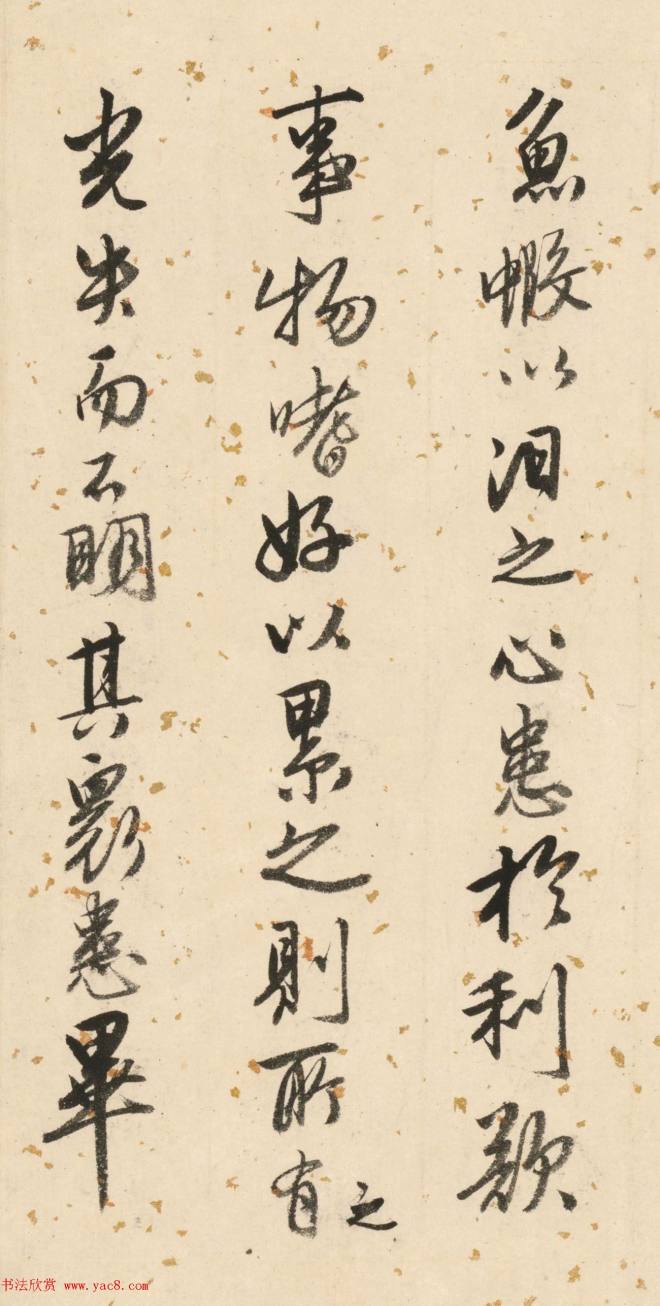 魚蝦以汩之心患於利欲
事物嗜好以累之則所有之
光失而不眀其衆患畢
书法欣赏 www.yac8.com